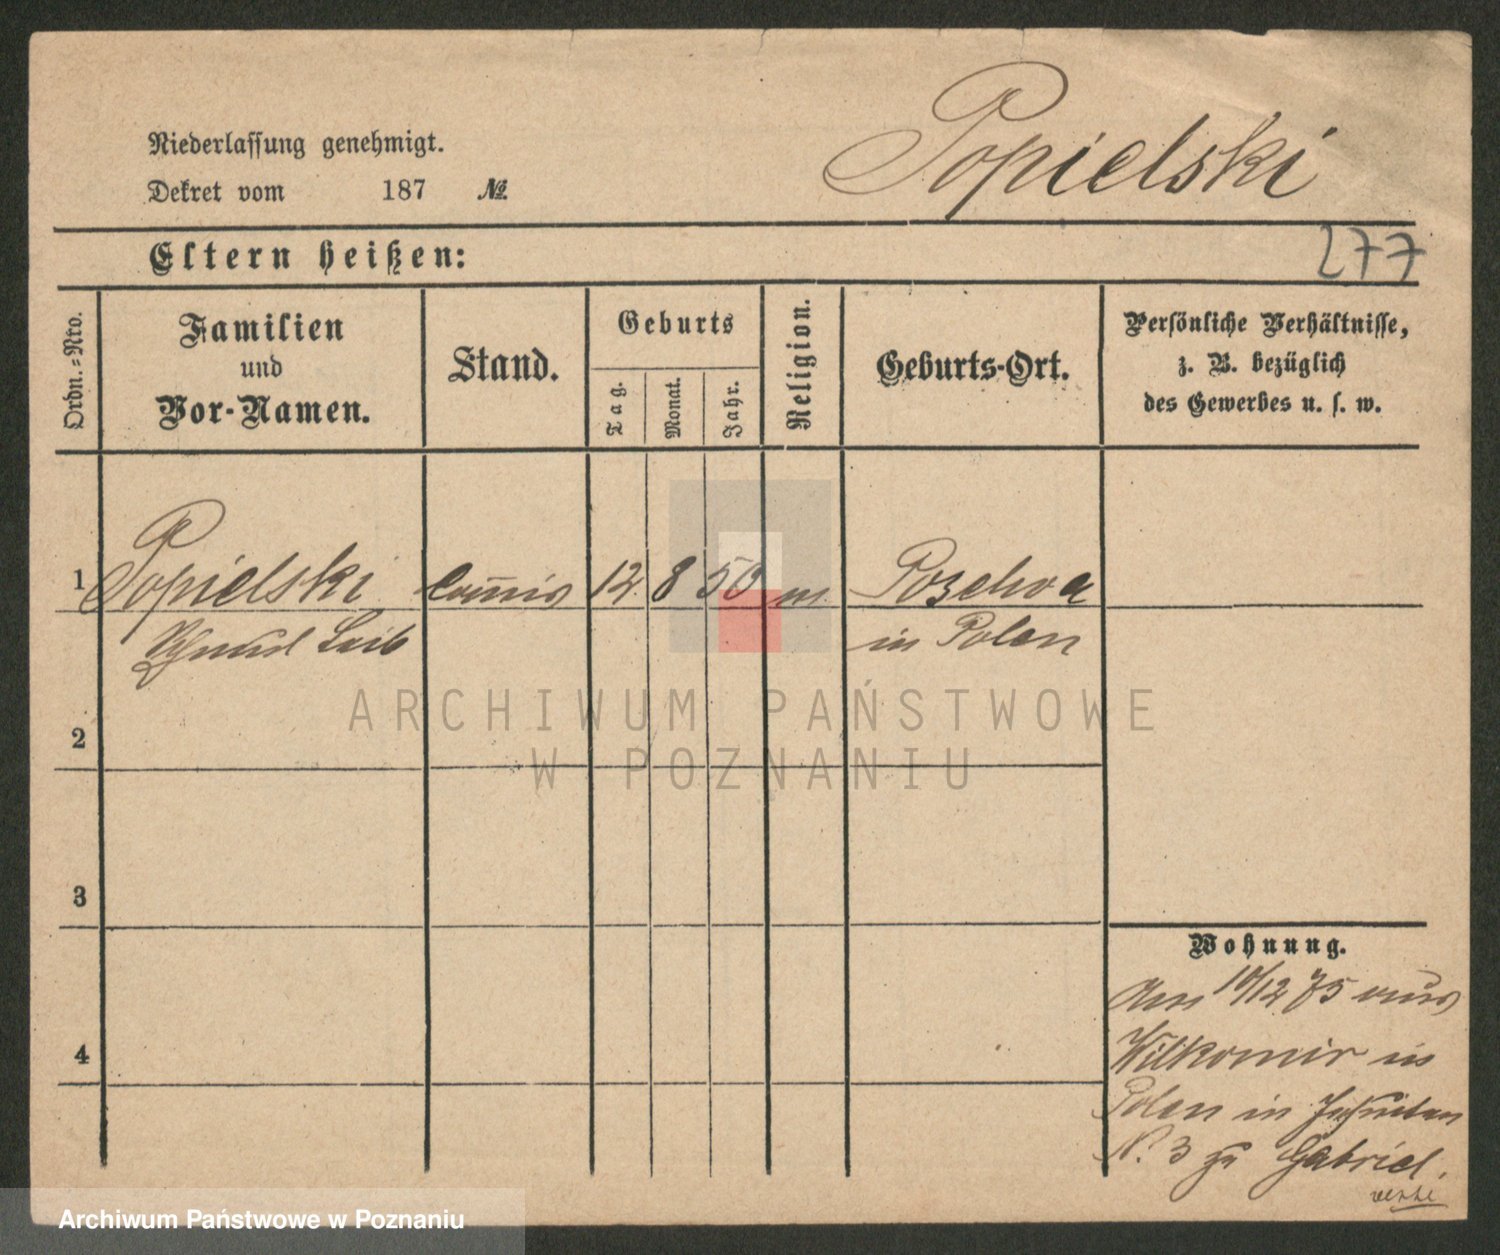 Niederlassung genehmigt.
Dekret vom 187 №
Popielski
277
Eltern heißen:
Ordn.-Nro.
Familien
und
Vor-Namen.
Stand.
Geburts
Tag.
Monat.
Jahr.
Religion.
Geburts-Ort.
Persönliche Verhältnisse,
z. B. bezüglich
des Gewerbes u. s. w.
1 Popielski Com̄is 12. 8 50 m. Pozelwa
Leib in Polen
2
3
4
Wohnung.
Am 10/12 75 aus
Wilkomir in
Polen in Jesuiten
N. 3 zu Gabriel.
verte
ARCHIWUM PAŃSTWOWE
W POZNANIU
Archiwum Państwowe w Poznaniu